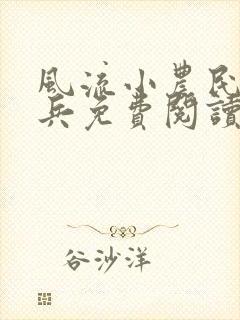 風流小農民
兵免費閱讀
谷沙洋